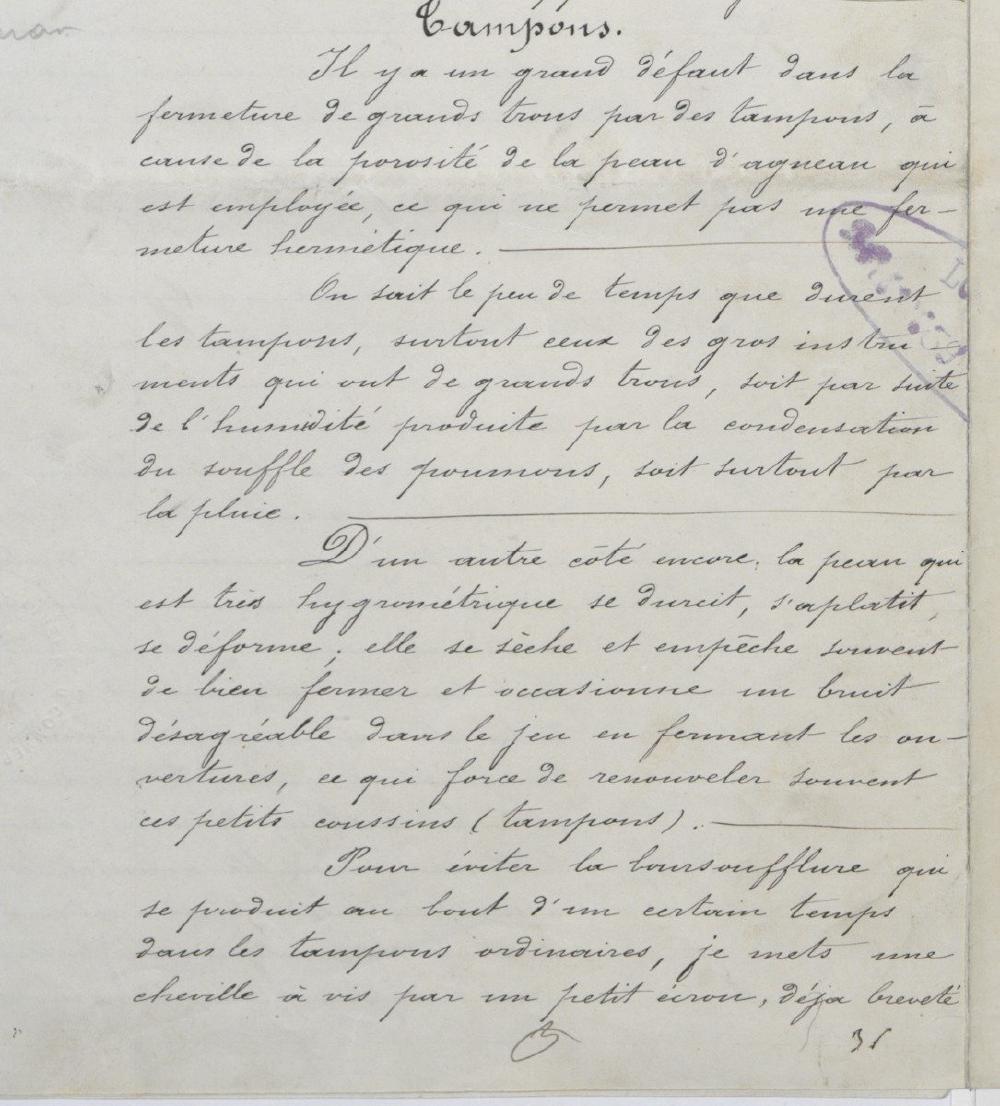 Tampons.
Il y a un grand défaut dans la
fermeture de grands trous par des tampons, à
cause de la porosité de la peau d'agneau qui
est employée, ce qui ne permet pas une fer-
meture hermétique.
On sait le peu de temps que durent
les tampons, surtout ceux des gros instru
ments qui ont de grands trous, soit par suite
de l'humidité produite par la condensation
du souffle des poumons, soit surtout par
la pluie.
D'un autre côté encore, la peau qui
est très hygrométrique se durcit, s'aplatit,
se déforme; elle se sèche et empêche souvent
de bien fermer et occasionne un bruit
désagréable dans le jeu en fermant les ou-
vertures, ce qui force de renouveler souvent
ces petits coussins (tampons).
Pour éviter la boursoufflure qui
se produit au bout d'un certain temps
dans les tampons ordinaires, je mets une
cheville à vis par un petit écrou, déja breveté